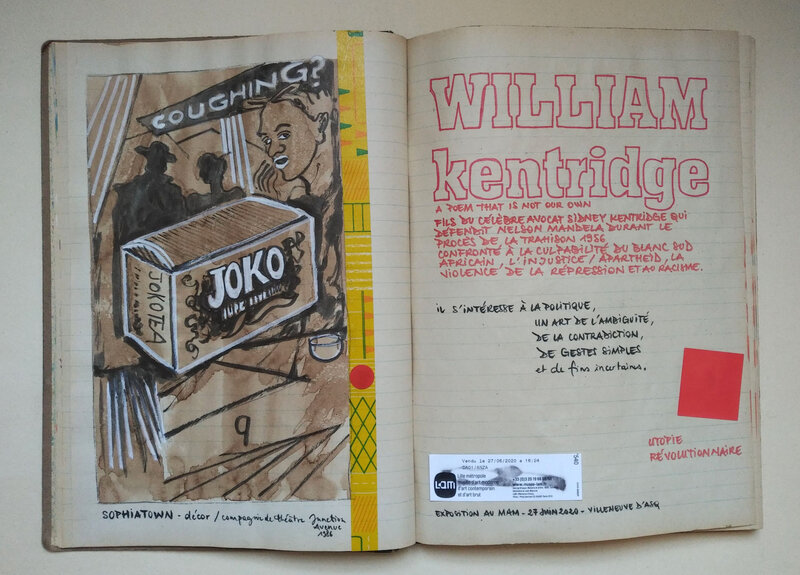 COUGHING?
JOKO
JOKO TEA
9
SOPHIATOWN - décor / compagnie de théâtre Junction
Avenue
1986
WILLIAM
kentridge
A POEM THAT IS NOT OUR OWN
FILS DU CÉLÈBRE AVOCAT SIDNEY KENTRIDGE QUI
DÉFENDIT NELSON MANDELA DURANT LE
PROCÈS DE LA TRAHISON 1956
CONFRONTÉ À LA CULPABILITÉ DU BLANC SUD
AFRICAIN, L'INJUSTICE / APARTHEID, LA
VIOLENCE DE LA RÉPRESSION ET AU RACISME.
IL S'INTÉRESSE À LA POLITIQUE,
UN ART DE L'AMBIGUITÉ,
DE LA CONTRADICTION,
DE GESTES SIMPLES
et de fins incertaines.
UTOPIE
RÉVOLUTIONNAIRE
Vendu le 27/06/2020 à 16:24
LaM
Lille métropole
musée d'art moderne
d'art contemporain
et d'art brut
EXPOSITION AU MAM - 27 JUIN 2020 - VILLENEUVE D'ASQ